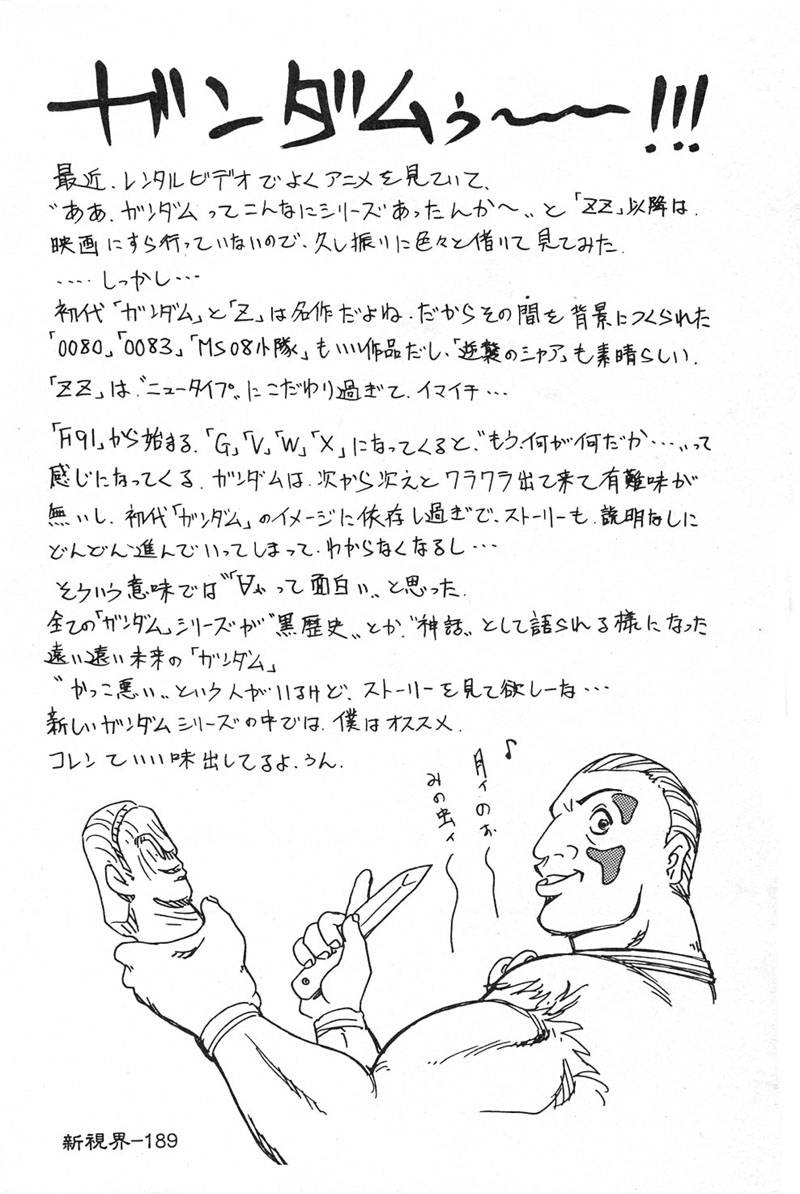 ガンダムぅ〜〜!!!
最近、レンタルビデオでよくアニメを見ていて、
〝ああ、ガンダムってこんなにシリーズあったんか〜〟と「ZZ」以降は、
映画にすら行っていないので、久し振りに色々と借りて見てみた。
‥‥しっかし…
初代「ガンダム」と「Z」は名作だよね。だからその間を背景につくられた
「0080」「0083」「MS08小隊」もいい作品だし、「逆襲のシャア」も素晴らしい。
「ZZ」は〝ニュータイプ〟にこだわり過ぎて、イマイチ…
「F91」から始まる、「G」「V」「W」「X」になってくると、〝もう、何が何だか…〟って
感じになってくる。ガンダムは、次から次えとワラワラ出て来て有難味が
無いし、初代「ガンダム」のイメージに依存し過ぎで、ストーリーも、説明なしに
どんどん進んでいってしまって、わからなくなるし…
そういう意味では〝∀〟って面白い〟と思った。
全ての「ガンダム」シリーズが〝黒歴史〟とか〝神話〟として語られる様になった
遠い遠い未来の「ガンダム」
〝かっこ悪い〟という人がいるけど、ストーリーを見て欲しーな…
新しいガンダムシリーズの中では、僕はオススメ。
コレンていい味出してるよ、うん。
♪
月ィのぉ〜
みの虫ィ〜
新視界-189